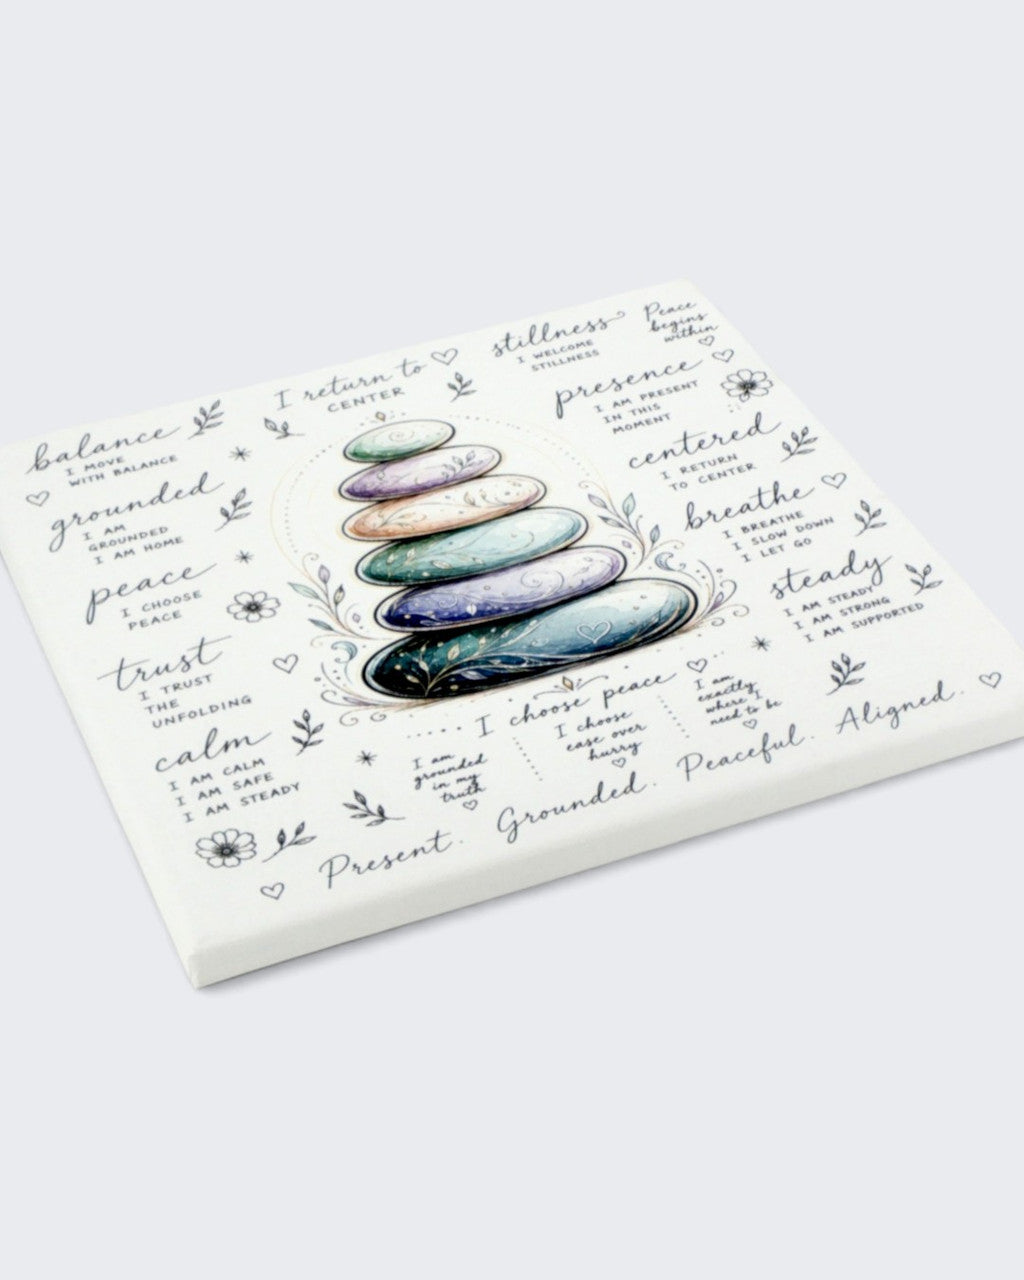 I return to
CENTER
stillness
I WELCOME
STILLNESS
Peace
begins
within
balance
I MOVE
WITH BALANCE
grounded
I AM
GROUNDED
I AM HOME
peace
I CHOOSE
PEACE
trust
I TRUST
THE
UNFOLDING
calm
I AM CALM
I AM SAFE
I AM STEADY
presence
I AM PRESENT
IN THIS
MOMENT
centered
I RETURN
TO CENTER
breathe
I BREATHE
I SLOW DOWN
I LET GO
steady
I AM STEADY
I AM STRONG
I AM SUPPORTED
I choose peace
I am
grounded
in my
truth
I choose
ease over
hurry
I am
exactly
where I
need to be
Present. Grounded. Peaceful. Aligned.